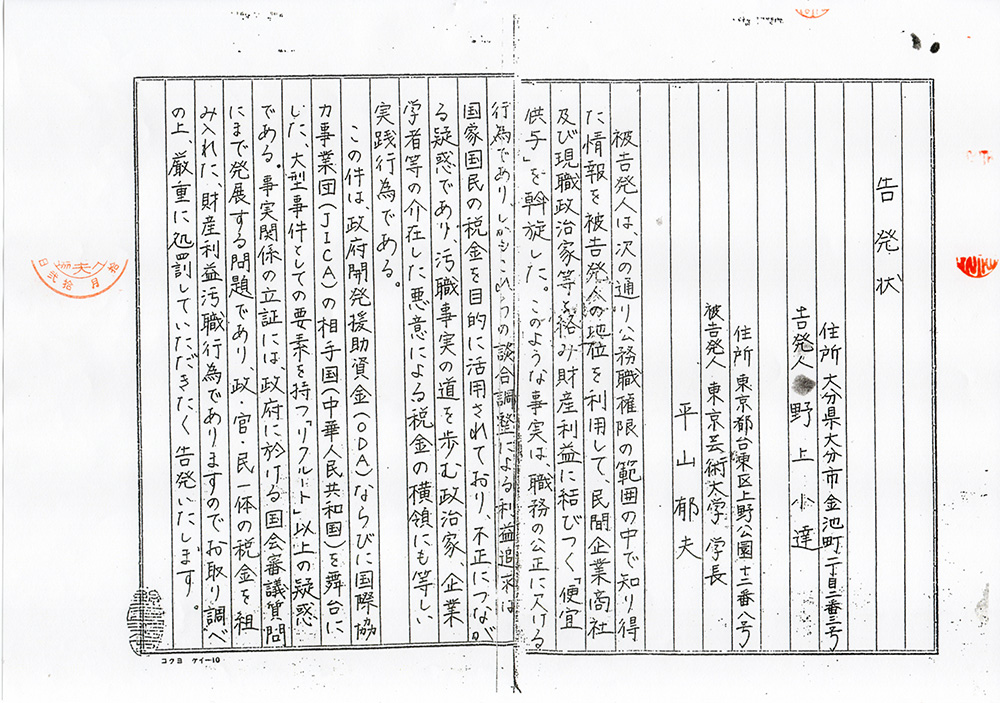 告発状
住所 大分県大分市金池町二丁目二番三号
告発人 野上小達
住所 東京都台東区上野公園十二番八号
被告発人 東京芸術大学 学長
平山郁夫
被告発人は、次の通り公務職権限の範囲の中で知り得
た情報を被告発人の地位を利用して、民間企業商社
及び現職政治家等を絡み財産利益に結びつく「便宜
供与」を斡旋した。このような事実は、職務の公正に欠ける
行為でありしかもこれらの談合調整による利益追求は
国家国民の税金を目的に活用されており、不正につなが
る疑惑であり、汚職事実の道を歩む政治家、企業
学者等の介在した悪意による税金の横領にも等しい
実践行為である。
この件は、政府開発援助資金(ODA)ならびに国際協
力事業団(JICA)の相手国(中華人民共和国)を舞台に
した、大型事件としての要素を持つ「リクルート」以上の疑惑
である。事実関係の立証には、政府に於ける国会審議質問
にまで発展する問題であり、政・官・民一体の税金を組
み入れた、財産利益汚職行為でありますのでお取り調べ
の上、厳重に処罰していただきたく告発いたします。
コクヨ ケイー10